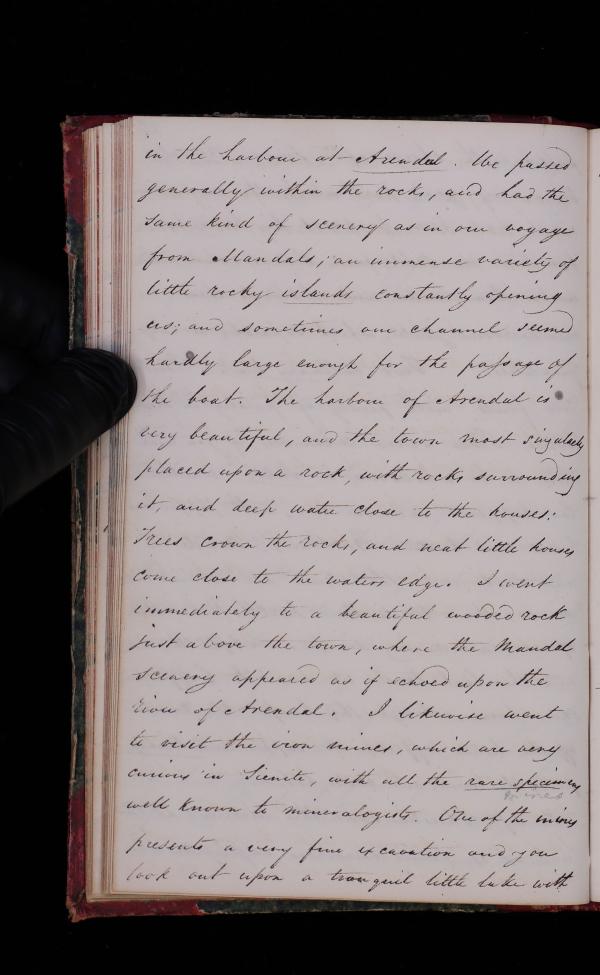 in the harbour at Arendal. We passed
generally within the rocks, and had the
same kind of scenery as in our voyage
from Mandals; an immense variety of
little rocky islands constantly opening
us; and sometimes our channel seemed
hardly large enough for the passage of
the boat. The harbour of Arendal is
very beautiful, and the town most singularly
placed upon a rock, with rocks surrounding
it, and deep water close to the houses:
Trees crown the rocks, and neat little houses
come close to the waters edge. I went
immediately to a beautiful wooded rock
just above the town, where the Mandal
scenery appeared as if echoed upon the
river of Arendal. I likewise went
to visit the iron mines, which are very
curious in Sienite, with all the rare specimens
well known to mineralogists. One of the mines
presents a very fine excavation and you
look out upon a tranquil little lake with